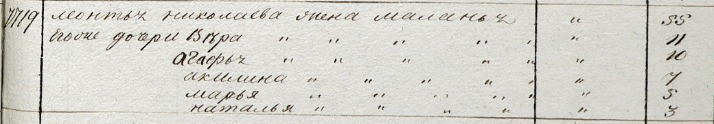 1719 леонтья николаева жена маланья " 55
дочери Вѣра " " " " " " " 11
агафья " " " " " " " 10
акилина " " " " " " 7
марья " " " " " " 5
наталья " " " " " " 3